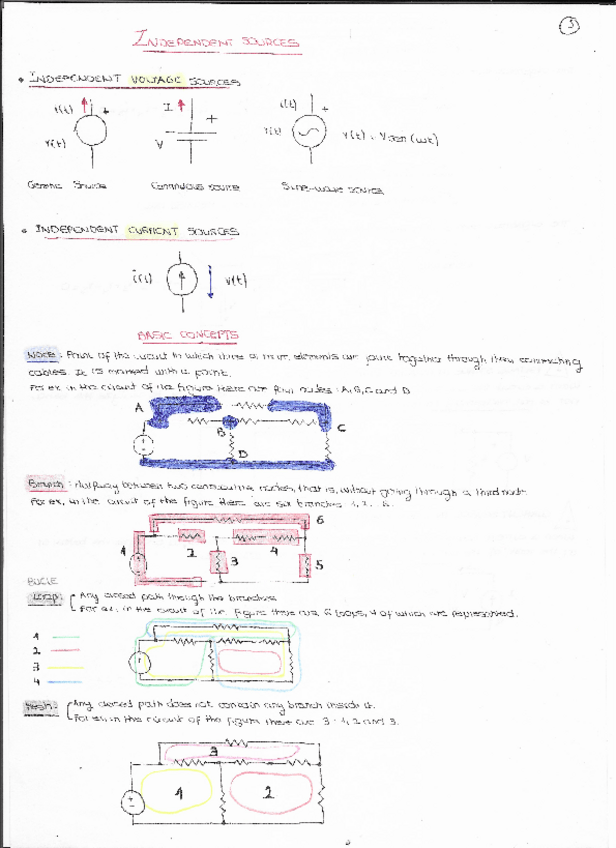 5
INDEPENDENT SOURCES
• INDEPENDENT VOLTAGE SOURCES
i(t) + I + i(t) +
v(t) V v(t) v(t) = V sen(ωt)
Generic Source Continuous source Sine-wave source
• INDEPENDENT CURRENT SOURCES
i(t) v(t)
BASIC CONCEPTS
Node: Point of the circuit in which three or more elements are joined together through their connecting
cables. It is marked with a point.
For ex. in the circuit of the figure there are four nodes: A, B, C and D
A
B C
D
Branch: between two consecutive nodes, that is, without going through a third node.
For ex, in the circuit of the figure there are six branches 1, 2.. 6.
6
1 2 3 4 5
BUCLE
Loop: Any closed path through the branches
For ex, in the circuit of the figure there are 6 loops, 4 of which are represented.
1
2
3
4
Mesh: Any closed path does not contain any branch inside it.
For ex, in the circuit of the figure there are 3: 1, 2 and 3.
3
1 2